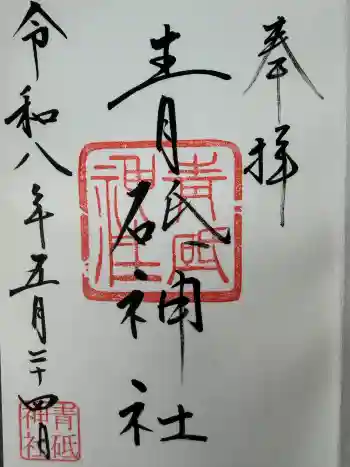 奉拝
青砥神社
令和八年五月二十四日
青砥
神社
青砥
神社